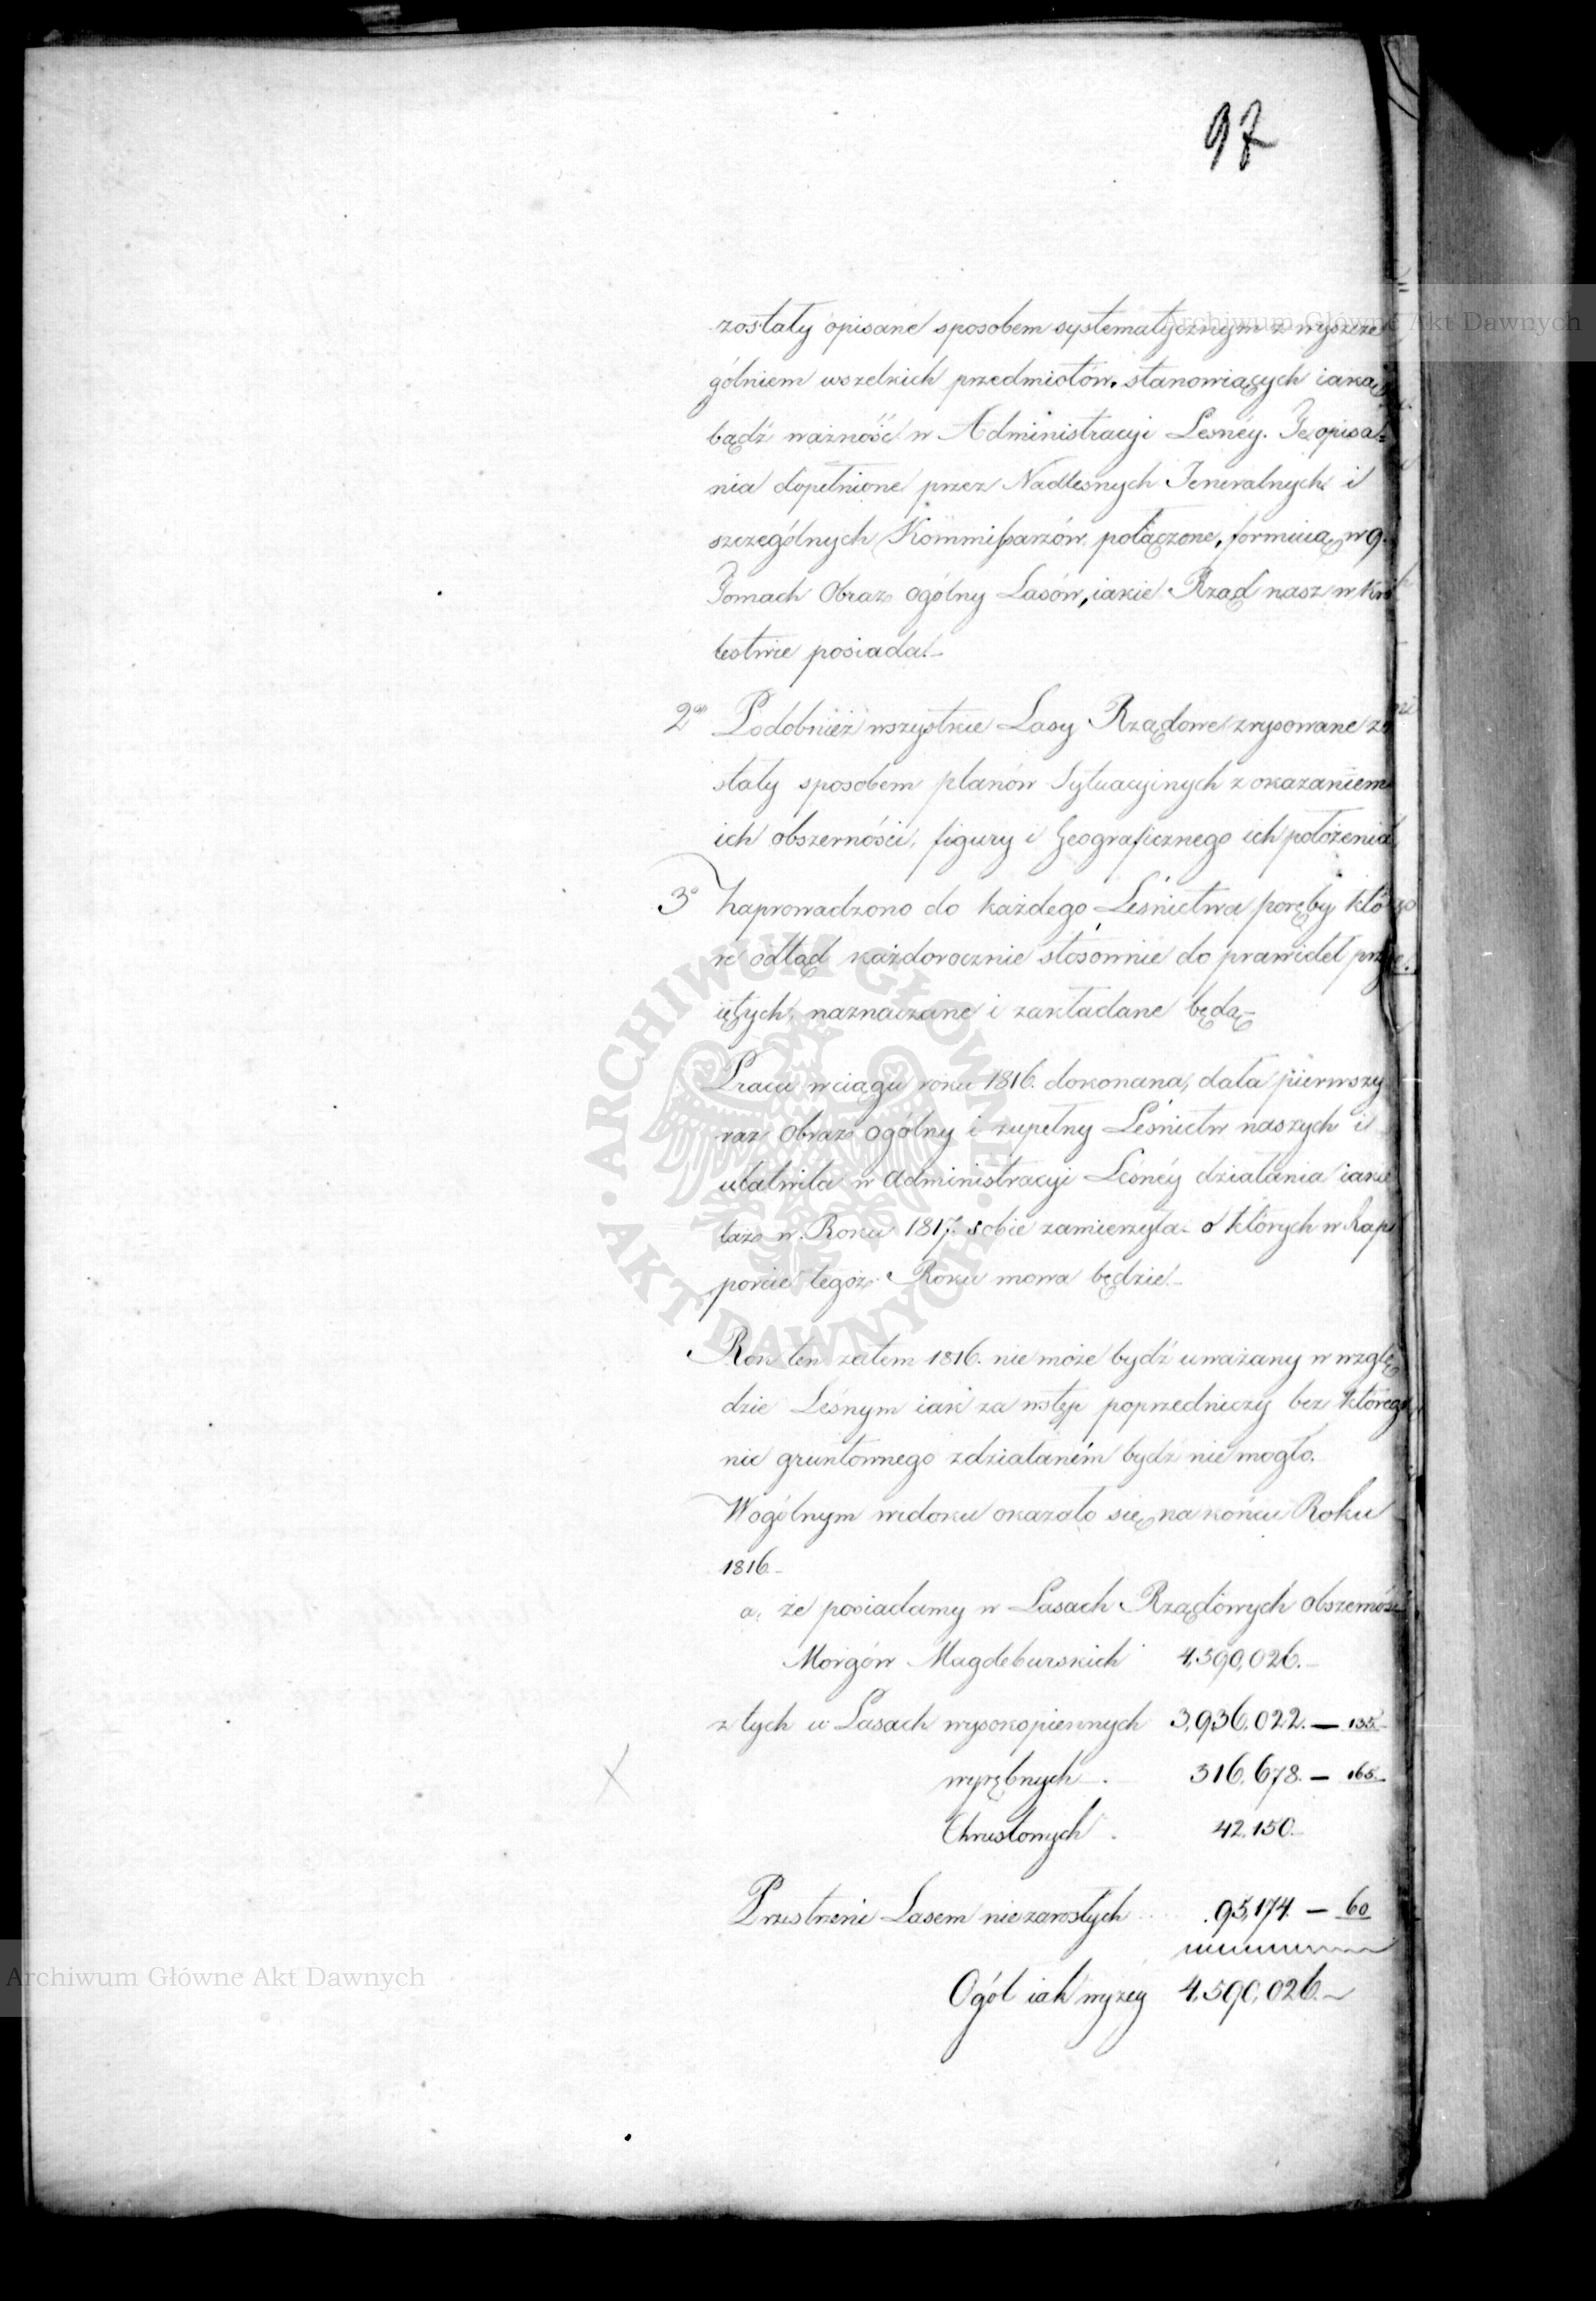 97
zostały opisane sposobem systematycznym z wyszcze
gólniem wszelkich przedmiotów, stanowiących iaką
bądź ważność w Administracyi Leśnéy. Te opisa=
nia dopełnione przez Nadleśnych Jeneralnych i
szczególnych Kommissarzów połączone, formuią w 9.
Tomach Obraz ogólny Lasów, iakie Rząd nasz w Kró
lestwie posiada.-
2do Podobnież wszystkie Lasy Rządowe zrysowane zo
stały sposobem planów Sytuacyinych z okazaniem
ich obszerności, figury i Geograficznego ich położenia
3o Zaprowadzono do każdego Leśnictwa poręby któ
re odtąd każdorocznie stosownie do prawideł przy
iętych naznaczane i zakładane będą-
Praca w ciągu roku 1816. dokonana, dała pierwszy
raz obraz ogólny i zupełny Leśnictw naszych i
ułatwiła w Administracyi Leśnéy działania iakie
taż w Roku 1817. sobie zamierzyła o których w Rap
porcie tegoż Roku mowa będzie.-
Rok ten zatem 1816. nie może bydź uważany w wzglę
dzie Leśnym iak za wstęp poprzedniczy bez którego
nic gruntownego zdziałaném bydź nie mogło.
W ogólnym widoku okazało się na końcu Roku
1816.-
a, że posiadamy w Lasach Rządowych obszerności
Morgów Magdeburskich 4,390,026.-
z tych w Lasach wysokopiennych 3,936,022. — 135
wyrębnych . 316,678. — 165
Chrustowych . 42,150.-
Przestrzeni Lasem niezarosłych . 95,174. — 60
Ogół iak wyżey 4,390,026.-
Archiwum Główne Akt Dawnych
ARCHIWUM GŁÓWNE · AKT DAWNYCH ·
Archiwum Główne Akt Dawnych